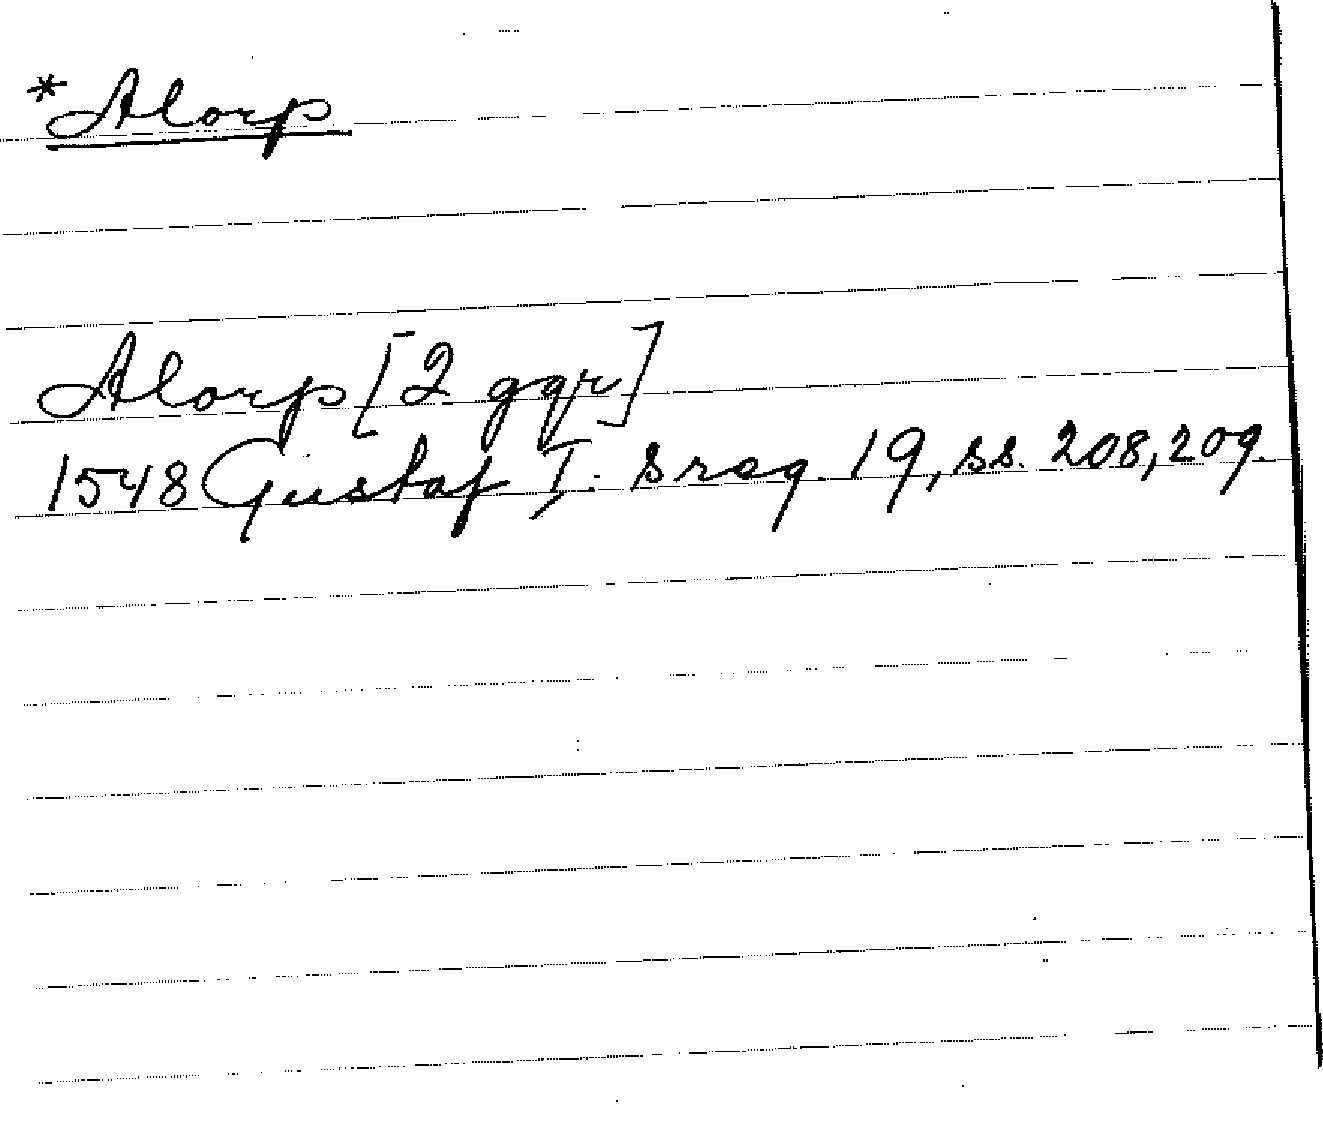 *Alorp
Alorp [2 ggr]
1548 Gustaf I:s reg. 19, ss. 208, 209.